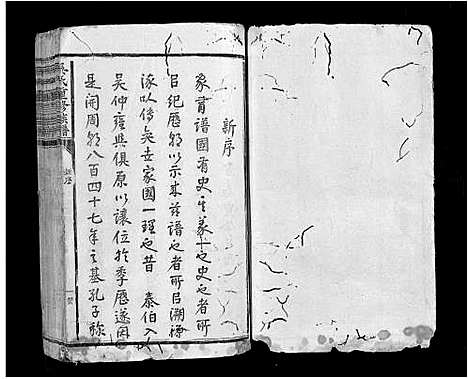 新序
家有譜國有史其義一也史之者所
以紀歷朝以示來茲譜也者所以溯
遂以侈矣在家國一理也昔 泰伯入
吳仲雍與俱原以讓位於季歷遂因
是開周朝八百四十七年之基孔子称
吳氏重修族譜